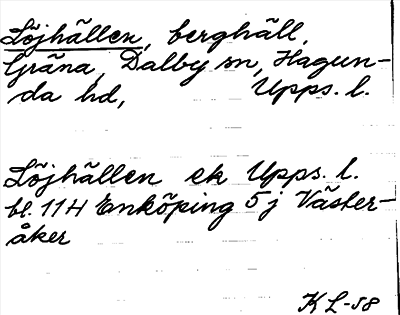 Löjhällen, berghäll,
Gräna, Dalby sn, Hagun-
da hd, Upps. l.
Löjhällen ek Upps. l.
bl. 11H Enköping 5j Väster-
åker
KL-58